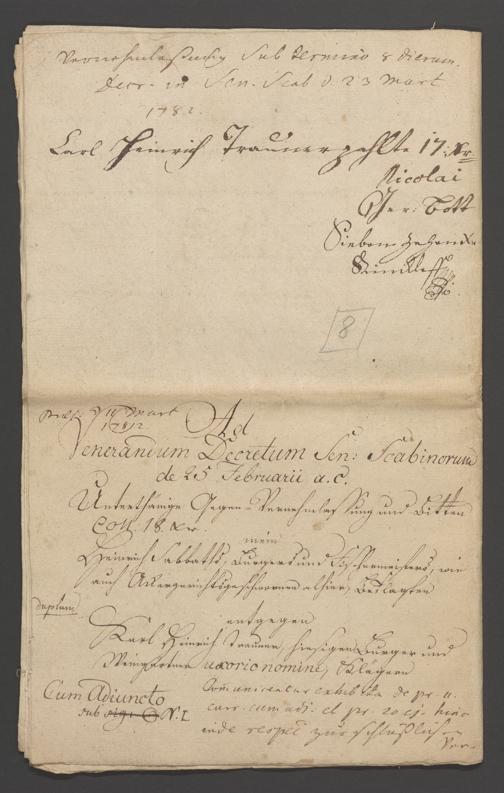 Vernehmlaßung sub termino 8 dierum.
Decr. in Sen. Scab d. 23 Mart
1782.
Carl Heinrich Trauner zahlte 17. Kr
Nicolai
Ger: Bott
Sieben zehen Kr
8
1782.
Mart
Ad
Venerandum Decretum Sen: Scabinorum
de 25 Februarii a.c.
Unterthänige Gegen-Vernehmlassung und Bitten
Coll. 18 Kr.
mein
Heinrich Sabbaths, Burgers und Fischermeisters, wie
auch Ackergerichtsgeschwornen alhier, Beklagten
duplum
entgegen
Karl Heinrich Trauner, hiesigen Burger und
Weingärtner uxorio nomine, Klägern
Cum Adjuncto
sub N. I.
Communicetur exhibita de pr. u.
curr. cum adj. et pr. 20 ej. hinc
inde respel zur schlüßlich-
Ver-